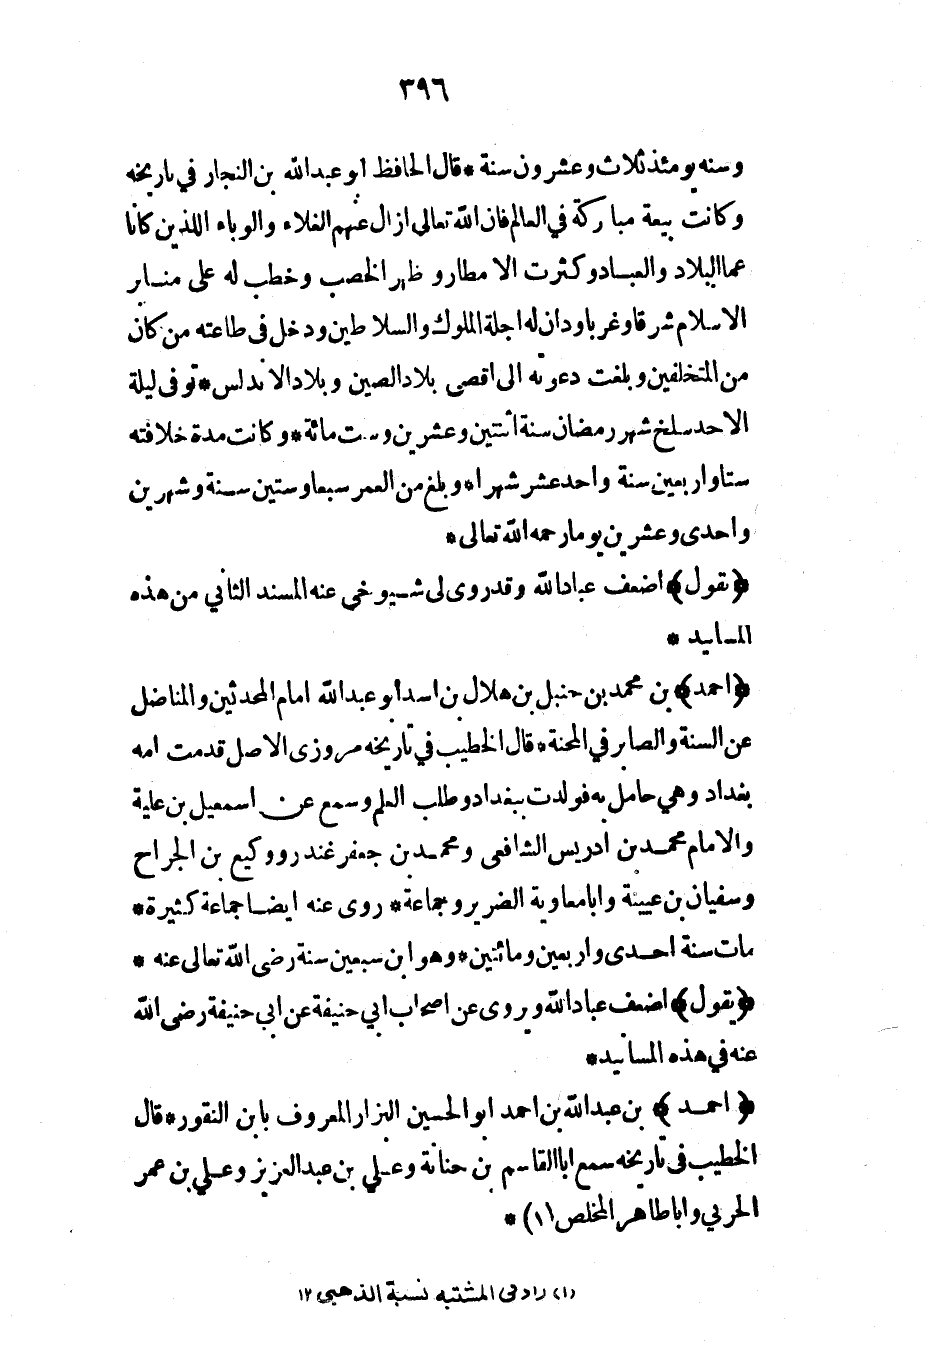 ٣٩٦
وسنه يومئذ ثلاث وعشرون سنة * قال الحافظ ابو عبدالله بن النجار في تاريخه
وكانت بيعة مباركة في العالم فان الله تعالى ازال عنهم الغلاء والوباء اللذين كانا
عما البلاد والعباد وكثرت الامطار وظهر الخصب وخطب له على منابر
الاسلام شرقا وغربا ودان له اجلة الملوك والسلاطين ودخل في طاعته من كان
من المتخلفين وبلغت دعوته الى اقصى بلاد الصين وبلاد الاندلس * توفى ليلة
الاحد سلخ شهر رمضان سنة اثنتين وعشرين وست مائة * وكانت مدة خلافته
ستا واربعين سنة واحد عشر شهرا * وبلغ من العمر سبعا وستين سنة وشهرين
واحدى وعشرين يوما رحمه الله تعالى *
﴿يقول﴾ اضعف عباد الله وقد روى لى شيوخي عنه المسند الثاني من هذه
المسانيد *
﴿احمد﴾ بن محمد بن حنبل بن هلال بن اسد أبو عبدالله امام المحدثين والمناضل
عن السنة والصابر في المحنة * قال الخطيب في تاريخه مروزى الاصل قدمت امه
بغداد وهي حامل به فولدت ببغداد وطلب العلم وسمع عن اسمعيل بن علية
والامام محمد بن ادريس الشافعى ومحمد بن جعفر غندر ووكيع بن الجراح
وسفيان بن عيينة وابا معاوية الضرير وجماعة * روى عنه ايضا جماعة كثيرة *
مات سنة احدى واربعين ومائتين * وهو ابن سبعين سنة رضى الله تعالى عنه *
﴿يقول﴾ اضعف عباد الله ويروى عن اصحاب ابي حنيفة عن ابي حنيفة رضى الله
عنه في هذه المسانيد *
﴿احمد﴾ بن عبدالله بن احمد ابو الحسين البزار المعروف بابن النقور * قال
الخطيب فى تاريخه سمع ابا القاسم بن حنانة وعلي بن عبدالعزيز وعلي بن عمر
الحربي وابا طاهر المخلص (١) *
(١) زاد فى المشتبه نسبة الذهبي ١٢